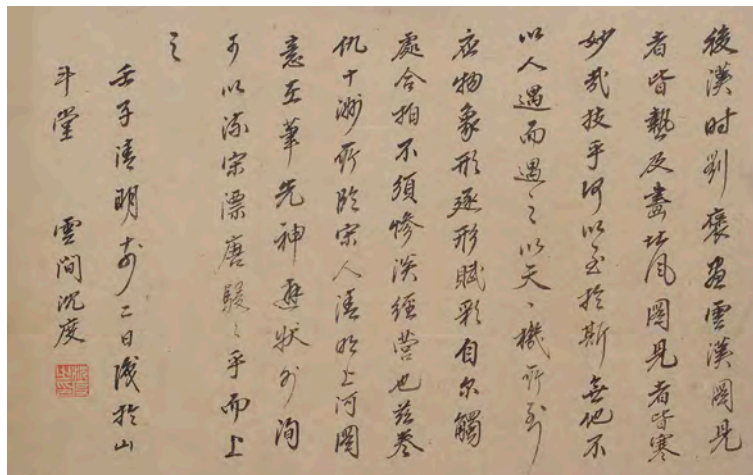 後漢时劉褒畫雲漢圖見
者皆熱及畫北风圖見者皆寒
妙哉技乎何以至於斯無他不
以人遇而遇之以天、機所到
应物象形逐形賦彩自尔觸
處合拍不須慘淡經營也茲卷
仇十洲所臨宋人清明上河圖
意在筆先神遊状外洵
可以流宋漂唐駸、乎而上
之
壬子清明前二日識於山
斗堂 雲間沈度